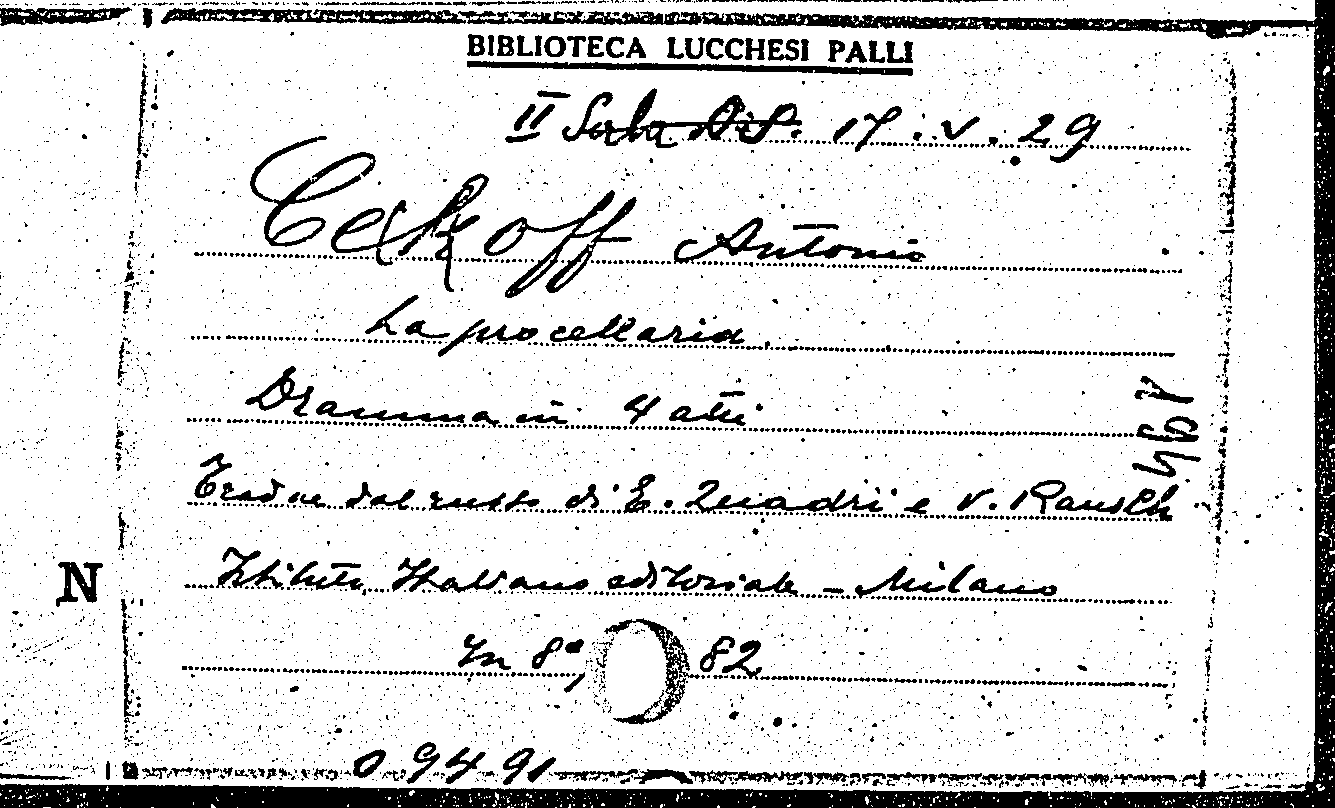 BIBLIOTECA LUCCHESI PALLI
II Sala Dis. 17.V.29
Cekoff Antonio
La procellaria.
Dramma in 4 atti
Traduz dal russo di E. Quadri e V. Rausch
Istituto Italiano editoriale - Milano
In 8°, 82
N
09491